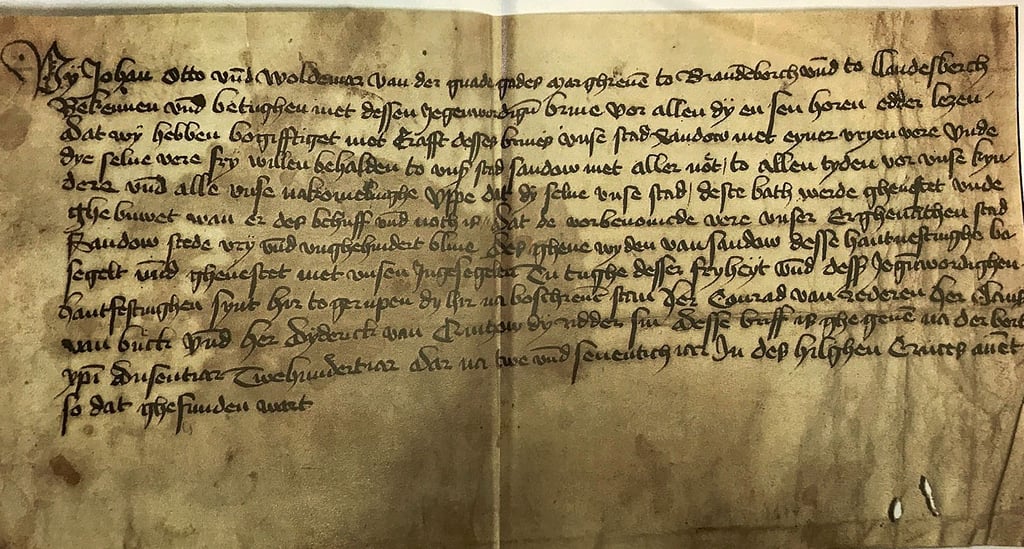 Wy Johan Otto vnd Woldemar van der gnade godes marghreuen to Brandeborch vnd to Landesberch
Bekennen vnd betughen met dessen jegenwordigen briue vor allen dy en sen horen edder lezen
dat wy hebben begifftiget met Crafft desses briues vnse stad Sandow met eyner vryen vere vnde
dye selue vere fry willen behalden to vnser stad Sandow met aller nöt, to allen tyden vor vnse kyn
dere vnd alle vnse nakomelinghe vppe dat dy selue vnse stad, deste bath werde gheuestet vnde
ghebuwet wan er des behuff vnd noth is, dat de vorbenomede vere vnser stad
Sandow stede vry vnd vnghehindert bliue des gheue wy den van Sandow desse hantuestinghe be
segelt vnd gheuestet met vnsen Ingesegelen Tu tughe desser fryheyt vnd desser Jegenwordighen
hantfestinghen synt hir to gerupen dy hir na beschreuen stan her Conrad van Rederen her
van buck vnd her dyderick van dy ridder sin desse briff is ghegeuen na der bort
xpi dusentiar Twehundertiar dar na twe vnd seuentich iar In des hilghen Cruces auet
so dat ghefunden wart